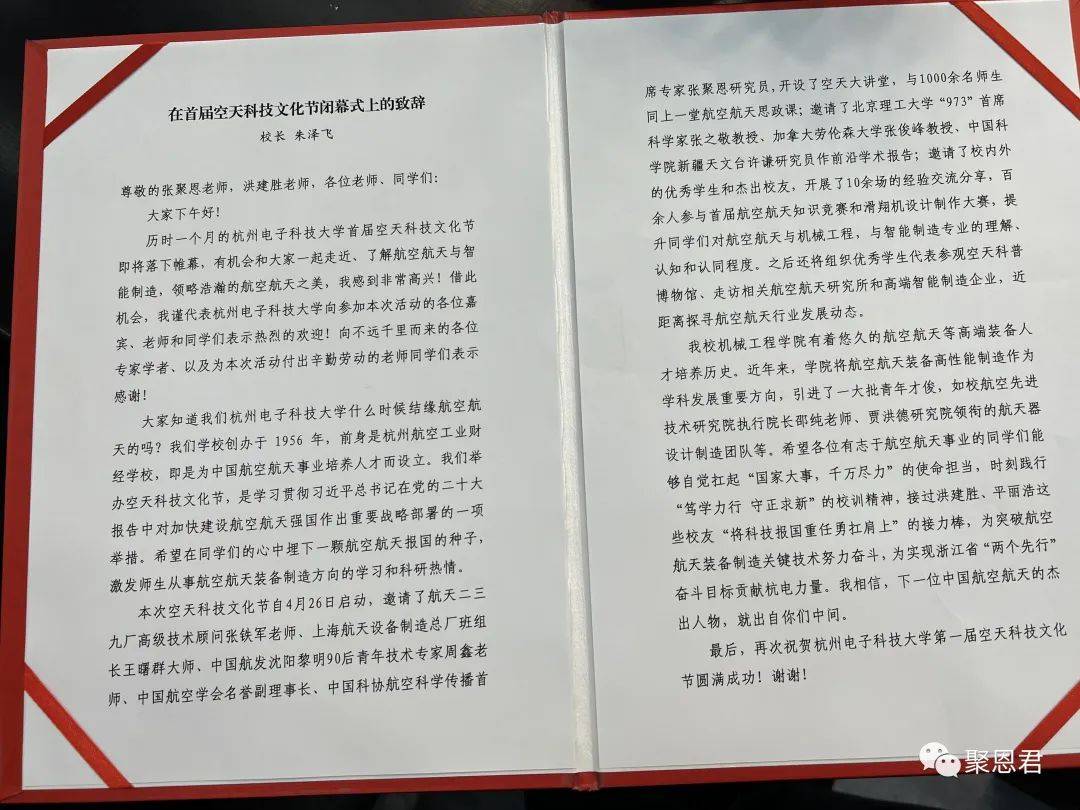 在首届空天科技文化节闭幕式上的致辞
校长 朱泽飞
尊敬的张聚恩老师，洪建胜老师，各位老师、同学们：
大家下午好！
历时一个月的杭州电子科技大学首届空天科技文化节
即将落下帷幕，有机会和大家一起走近、了解航空航天与智
能制造，领略浩瀚的航空航天之美，我感到非常高兴！借此
机会，我谨代表杭州电子科技大学向参加本次活动的各位嘉
宾、老师和同学们表示热烈的欢迎！向不远千里而来的各位
专家学者、以及为本次活动付出辛勤劳动的老师同学们表示
感谢！
大家知道我们杭州电子科技大学什么时候结缘航空航
天的吗？我们学校创办于 1956 年，前身是杭州航空工业财
经学校，即是为中国航空航天事业培养人才而设立。我们举
办空天科技文化节，是学习贯彻习近平总书记在党的二十大
报告中对加快建设航空航天强国作出重要战略部署的一项
举措。希望在同学们的心中埋下一颗航空航天报国的种子，
激发师生从事航空航天装备制造方向的学习和科研热情。
本次空天科技文化节自4月26日启动，邀请了航天二三
九厂高级技术顾问张铁军老师、上海航天设备制造总厂班组
长王曙群大师、中国航发沈阳黎明90后青年技术专家周鑫老
师、中国航空学会名誉副理事长、中国科协航空科学传播首
席专家张聚恩研究员，开设了空天大讲堂，与1000余名师生
同上一堂航空航天思政课；邀请了北京理工大学“973”首席
科学家张之敬教授、加拿大劳伦森大学张俊峰教授、中国科
学院新疆天文台许谦研究员作前沿学术报告；邀请了校内外
的优秀学生和杰出校友，开展了10余场的经验交流分享，百
余人参与首届航空航天知识竞赛和滑翔机设计制作大赛，提
升同学们对航空航天与机械工程，与智能制造专业的理解、
认知和认同程度。之后还将组织优秀学生代表参观空天科普
博物馆、走访相关航空航天研究所和高端智能制造企业，近
距离探寻航空航天行业发展动态。
我校机械工程学院有着悠久的航空航天等高端装备人
才培养历史。近年来，学院将航空航天装备高性能制造作为
学科发展重要方向，引进了一大批青年才俊，如校航空先进
技术研究院执行院长邵纯老师、贾洪德研究院领衔的航天器
设计制造团队等。希望各位有志于航空航天事业的同学们能
够自觉扛起“国家大事，千万尽力”的使命担当，时刻践行
“笃学力行 守正求新”的校训精神，接过洪建胜、平丽浩这
些校友“将科技报国重任勇扛肩上”的接力棒，为突破航空
航天装备制造关键技术努力奋斗，为实现浙江省“两个先行”
奋斗目标贡献杭电力量。我相信，下一位中国航空航天的杰
出人物，就出自你们中间。
最后，再次祝贺杭州电子科技大学第一届空天科技文化
节圆满成功！谢谢！
聚恩君